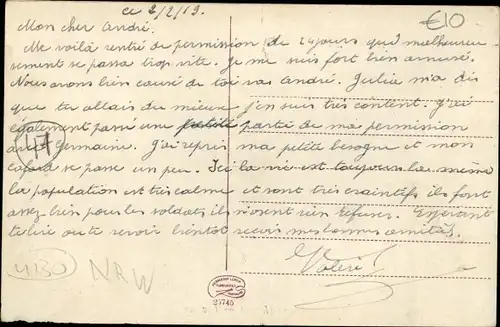 ce 2/2/19.
€10
Mon cher André.
Me voilà rentré de permission de 14 jours qui malheureu
sement se passa trop vite. Je me suis fort bien amusé.
Nous avons bien causé de toi va André. Julia m'a dis
que tu allais du mieux j'en suis très content. J'ai
également passé une petite partie de ma permission
avec Germaine. J'ai repris ma petite besogne et mon
cafard se passe un peu. Ici la vie est toujours la même
la population est très calme et sont très craintifs ils font
assez bien pour les soldats ils n'osent rien refuser. Espérant
te lire ou te revoir bientôt reçois mes bonnes amitiés.
Valéri
47
4130
NRW
25745